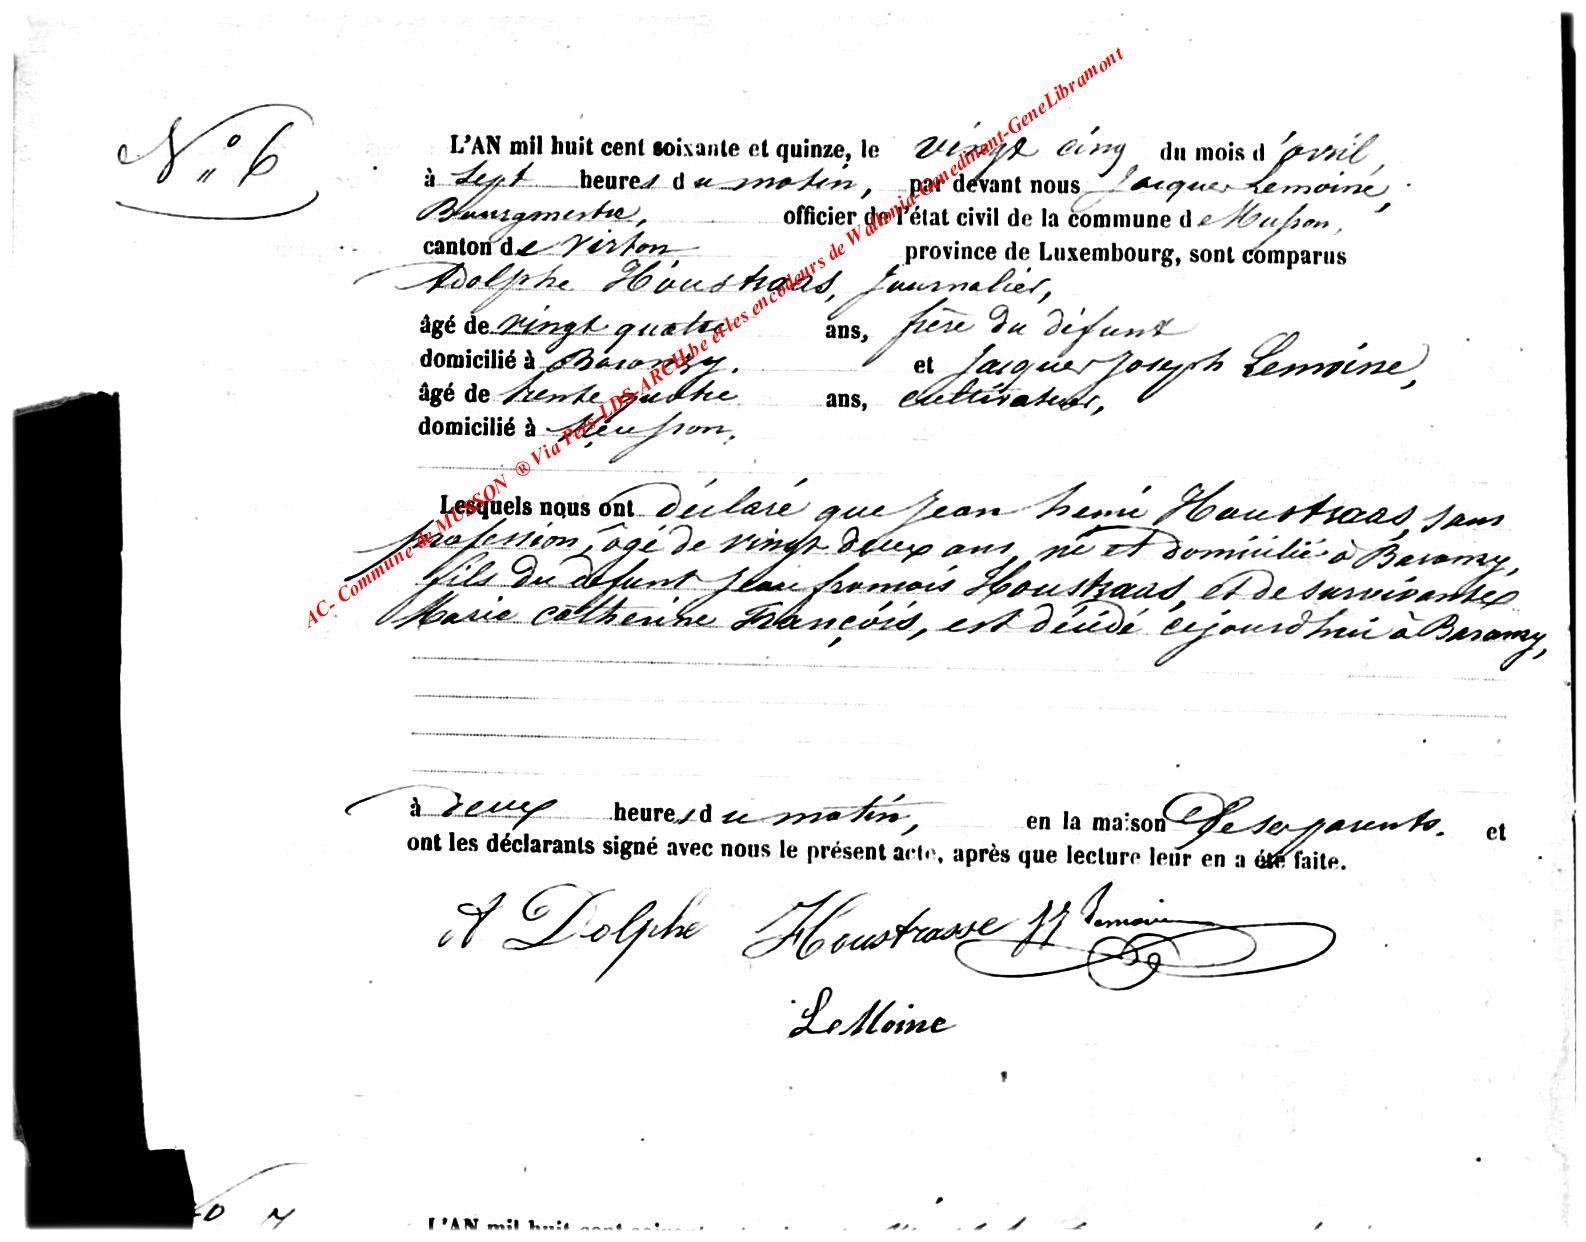 N° 6
L'AN mil huit cent soixante et quinze, le vingt cinq du mois d'avril,
à sept heures du matin, par devant nous Jacques Lemoine,
Bourgmestre, officier de l'état civil de la commune de Musson,
canton de Virton province de Luxembourg, sont comparus
Adolphe Houstraas, Journalier,
âgé de vingt quatre ans, frère du défunt
domicilié à Baranzy, et Jacques Joseph Lemoine,
âgé de trente quatre ans, cultivateur,
domicilié à Musson.
Lesquels nous ont déclaré que Jean henri Houstraas, sans
profession, âgé de vingt deux ans, né et domicilié à Baranzy,
fils du défunt Jean françois Houstraas, et de survivante
Marie Catherine François, est décédé cejourd'hui à Baranzy,
à deux heures du matin, en la maison de ses parents. et
ont les déclarants signé avec nous le présent acte, après que lecture leur en a été faite.
ADolphe Houstrasse JJ Lemoine
LeMoine
AC- Commune de MUSSON ® Via Pers-LDS-ARCH.be et les encodeurs de Wallonia-Genedinant-GeneLibramont
L'AN mil huit cent